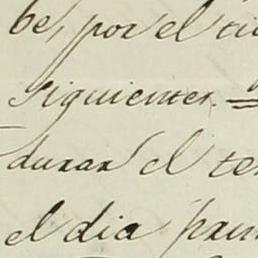 be, por el ti
siguientes. =
durar el te
el dia prim